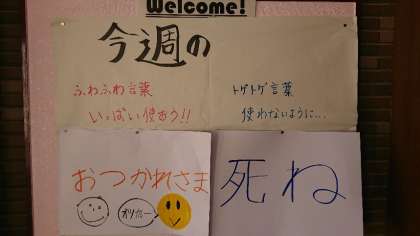 Welcome!
今週の
ふわふわ言葉
いっぱい使おう!!
トゲトゲ言葉
使わないように...
おつかれさま
死ね